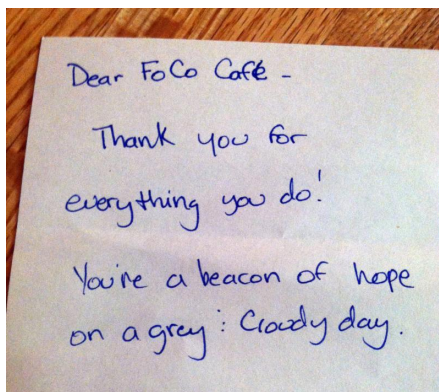 Dear FoCo Café -
Thank you for
everything you do!
You're a beacon of hope
on a grey : Cloudy day.